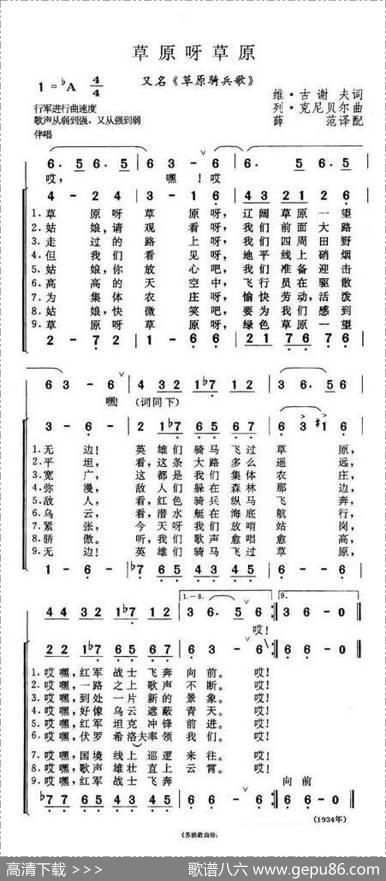 草原呀草原
又名《草原骑兵歌》
1=♭A 4/4
维·古谢夫词
列·克尼贝尔曲
薛 范译配
行军进行曲速度
歌声从弱到强，又从强到弱
伴唱
6. 5 6. 5 6 6 3 - 6 6. 5 6. 5 6
哎， 嘿！哎
4 - 2 4 3 - 6 6 4 3 2 1 2 1 6
1.草 原呀 草 原呀，辽阔草原一望
2.姑 娘，请 观 看呀，我们前面大路
3.走 过的 路 上呀，我们四周田野
4.但 我们 看 见呀，地平线上硝烟
5.姑 娘，你 放 心吧，我们准备迎击
6.高 高的 天 空中，飞行员在驱散
7.为 集体 农 庄呀，愉快劳动，活泼
8.姑 娘，快 微 笑吧，要为我们感到
9.草 原呀 草 原呀，绿色草原一望
2 - 7 2 1 - 6
6 3 - 6 4 3 2 1 ♭7 3 6. 5 6
嘿！(词同下)
3 - 6 2 1 ♭7 6 5 4 3 6 3 ♯1 6
1.无 边！英雄们骑马飞过草 原，
2.平 坦，看，这条大路多么遥 远，
3.宽 广，这都是我们集体农 庄，
4.弥 漫，敌人们躲在森林那 边，
5.敌 人，看，红色骑兵纵马飞 奔，
6.乌 云，看，潜水艇在海底航 行，
7.紧 张，今天呀我们放哨站 岗，
8.骄 傲。听，我们歌声愈唱愈 高，
9.无 边！英雄们骑马飞过草 原，
1 - 6
4 4 3 2 1 ♭7 3 6. 5 6 3 6 - 0
1.-8. 9.
哎！
2 2 1 ♭7 6 5
1.哎嘿，红军 战士 飞奔 向前。哎！
2.哎嘿，一路 之上 歌声 不断。哎！
3.哎嘿，到处 一片 新的 景象。哎！
4.哎嘿，好像 乌云 遮蔽 青天。哎！
5.哎嘿，红军 坦克 冲锋 前进。哎！
6.哎嘿，伏罗 希洛夫率领我们。哎！
7.哎嘿，国境 线上 巡逻 来往。哎！
8.哎嘿，歌声 雄壮 直上 云霄。哎！
9.哎嘿，红军 战士 飞奔 向前
(1934年)
高清下载 >>>
歌谱八六 www.gepu86.com